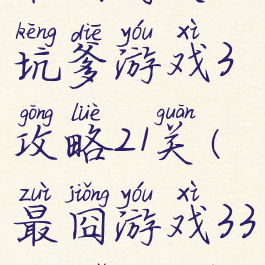 kēng diē yóu xì
坑爹游戏3
gōng lüè guān
攻略21关(
zuì jiǒng yóu xì
最囧游戏33